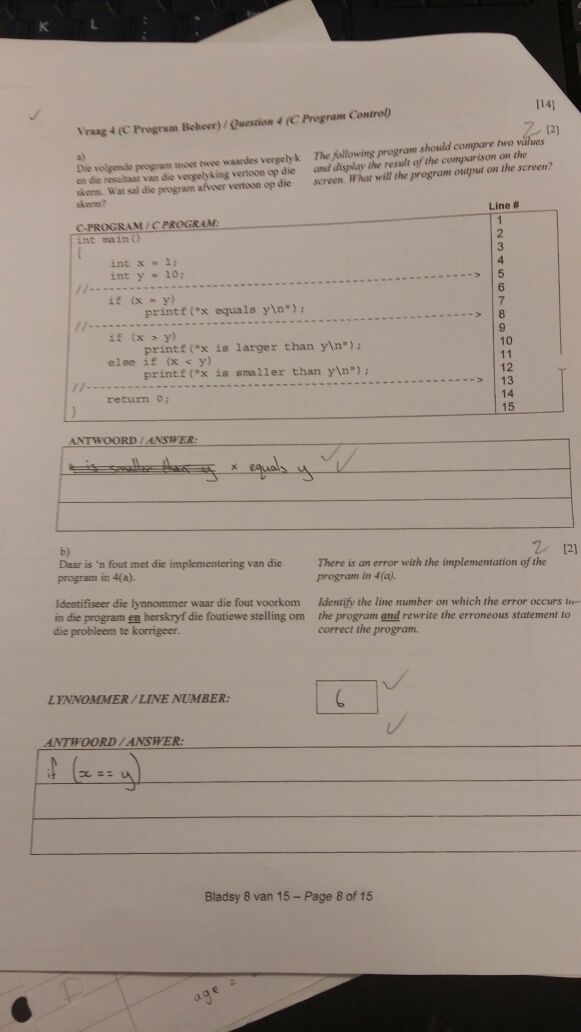 K L
[14]
Vraag 4 (C Program Beheer) / Question 4 (C Program Control)
2 [2]
a)
Die volgende program moet twee waardes vergelyk
en die resultaat van die vergelyking vertoon op die
skerm. Wat sal die program afvoer vertoon op die
skerm?
The following program should compare two values
and display the result of the comparison on the
screen. What will the program output on the screen?
C-PROGRAM / C PROGRAM: Line #
int main() 1
{ 2
3
int x = 1; 4
int y = 10; 5
//--------------------------------------------------> 6
if (x = y) 7
printf("x equals y\n"); 8
//--------------------------------------------------> 9
if (x > y) 10
printf("x is larger than y\n"); 11
else if (x < y) 12
printf("x is smaller than y\n"); 13
//--------------------------------------------------> 14
return 0; 15
}
ANTWOORD / ANSWER:
x is smaller than y x equals y
2 [2]
b)
Daar is 'n fout met die implementering van die
program in 4(a).
There is an error with the implementation of the
program in 4(a).
Identifiseer die lynnommer waar die fout voorkom
in die program en herskryf die foutiewe stelling om
die probleem te korrigeer.
Identify the line number on which the error occurs in
the program and rewrite the erroneous statement to
correct the program.
LYNNOMMER / LINE NUMBER: 6
ANTWOORD / ANSWER:
if (x == y)
Bladsy 8 van 15 – Page 8 of 15
age =